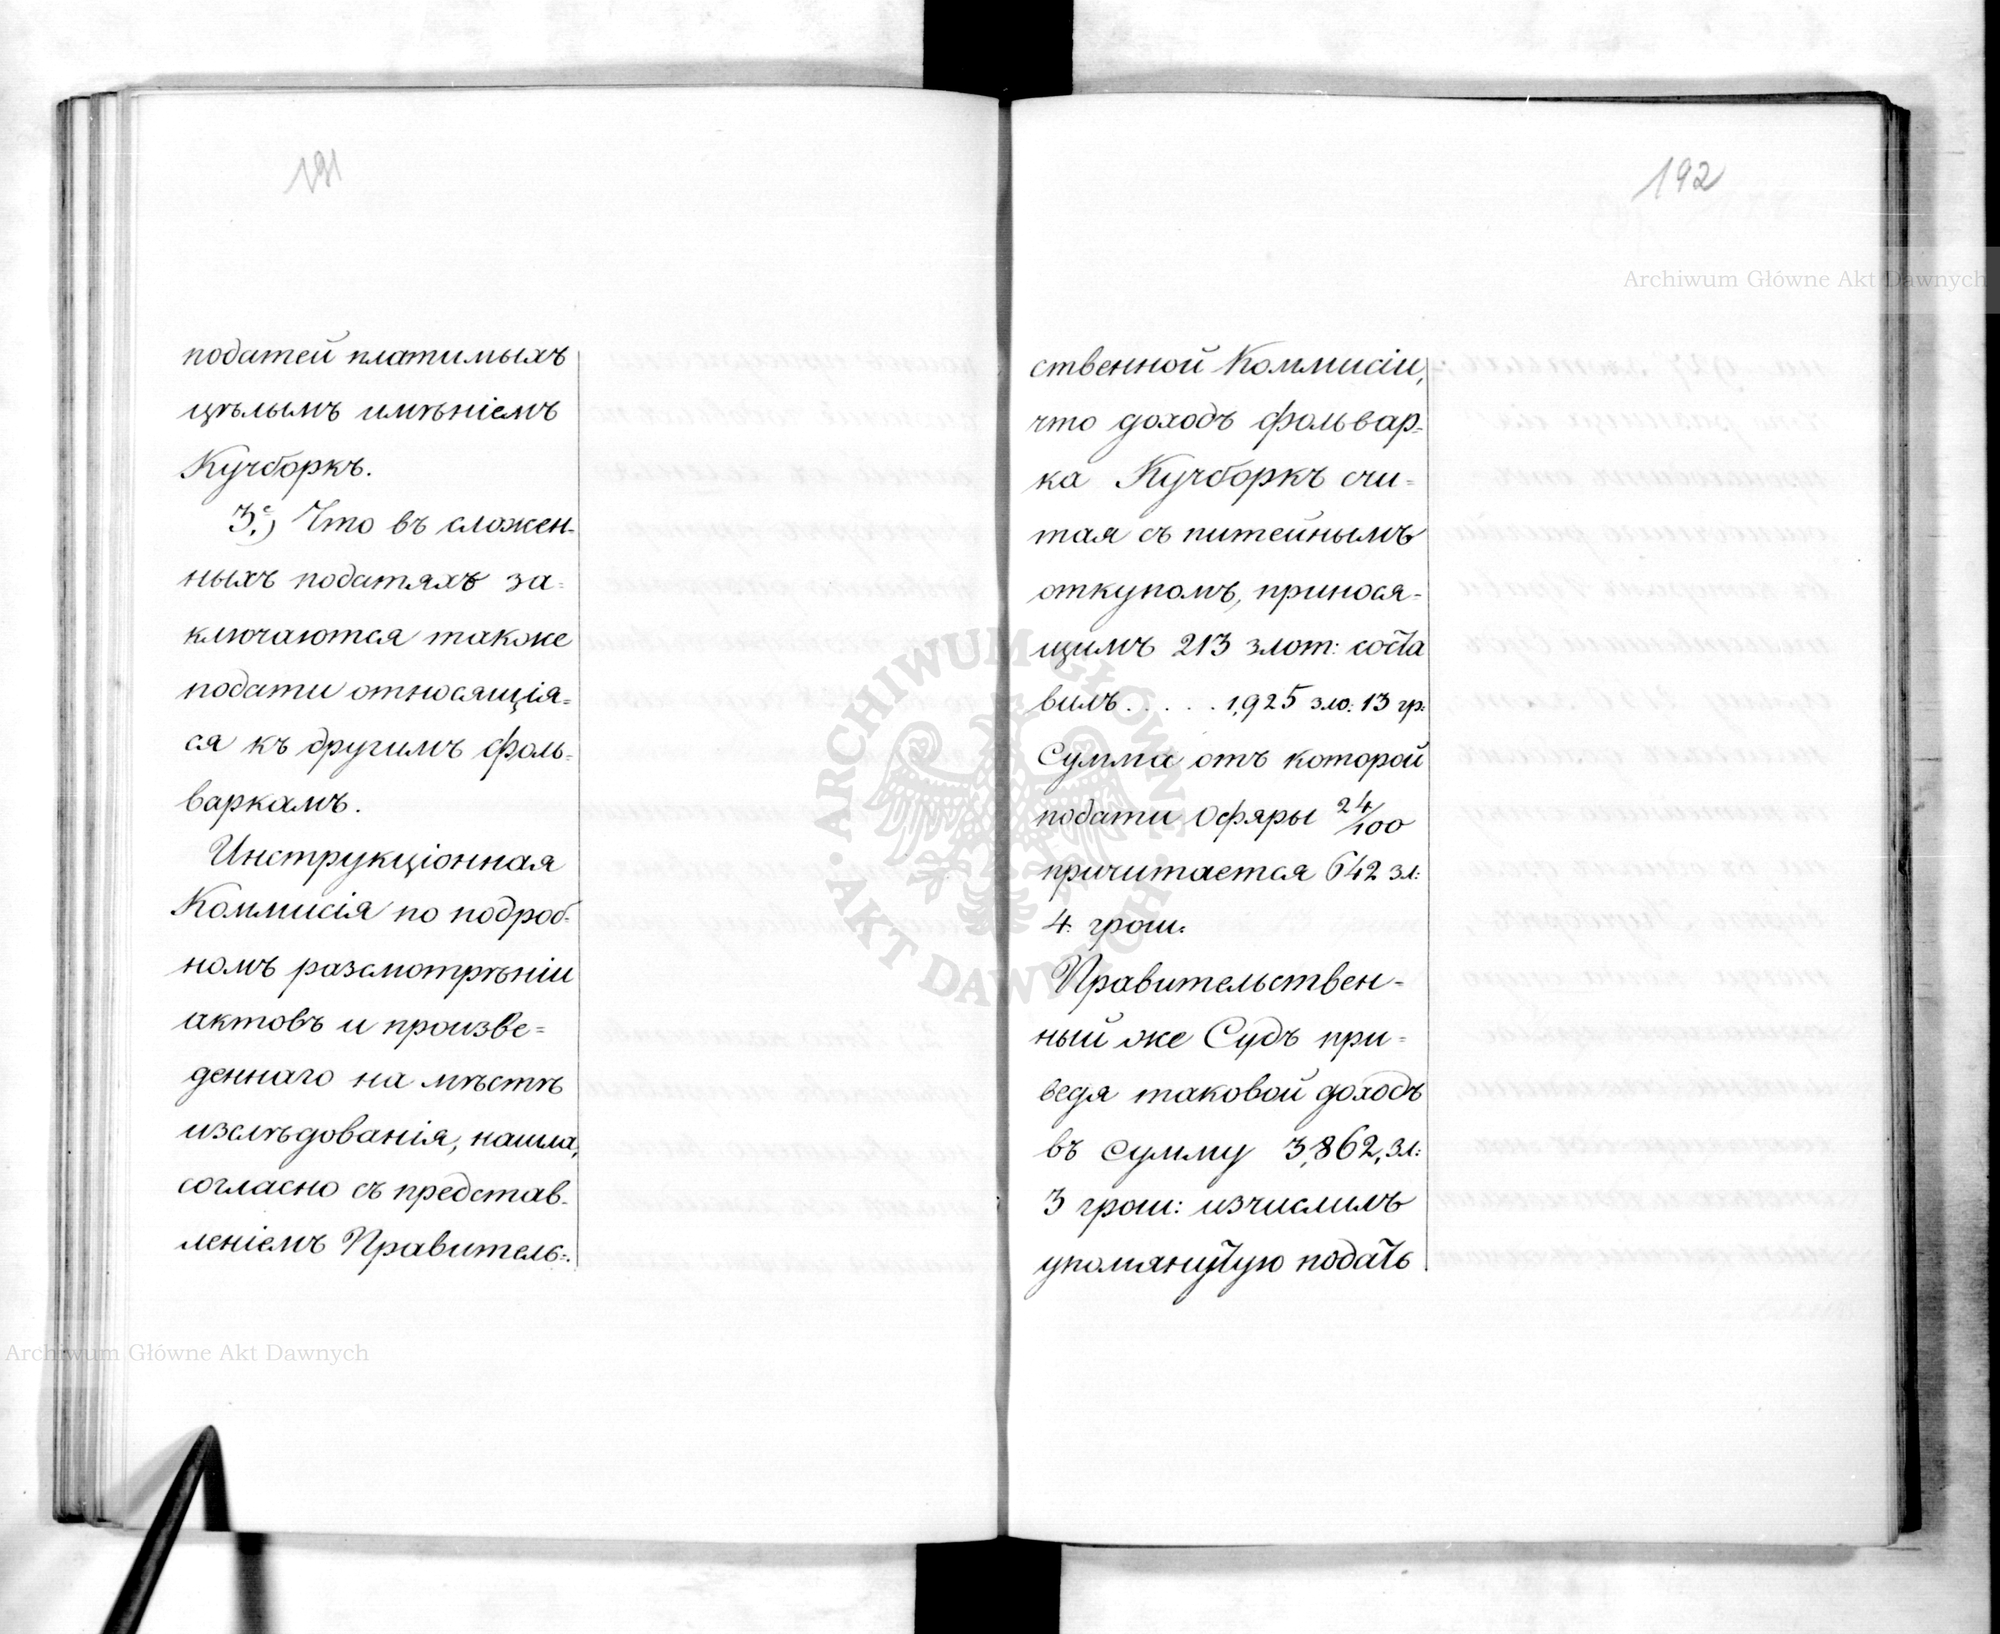 191
податей платимыхъ
цѣлымъ имѣніемъ
Кучборкъ.
3е.) Что въ сложен-
ныхъ податяхъ за-
ключаются также
подати относящія-
ся къ другимъ фоль-
варкамъ.
Инструкціонная
Коммисія по подроб-
номъ разсмотрѣніи
актовъ и произве-
деннаго на мѣстѣ
изслѣдованія, нашла,
согласно съ представ-
леніемъ Правитель-
192
ственной Коммисіи,
что доходъ фольвар-
ка Кучборкъ счи-
тая съ питейнымъ
откупомъ, принося-
щимъ 213 злот: соста
вилъ..... 1,925 зло: 13 гр:
Сумма отъ которой
подати Офяры 24/100
причитается 642 зл:
4. грош.
Правительствен-
ный же Судъ при-
ведя таковой доходъ
въ сумму 3,862, зл:
3 грош: изчислилъ
упомянутую подать
Archiwum Główne Akt Dawnych
Archiwum Główne Akt Dawnych
ARCHIWUM GŁÓWNE
AKT DAWNYCH